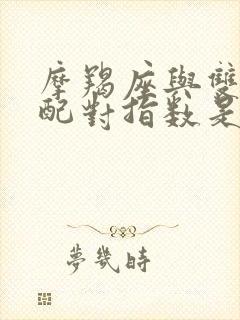 摩羯座與雙
配對指數是
夢幾時